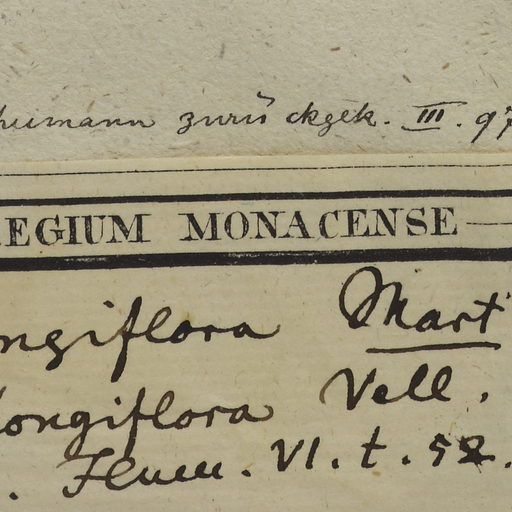 humann zurückgek. III. 97
REGIUM MONACENSE
ngiflora Mart
longiflora Vell.
. Flum. VI. t. 52.